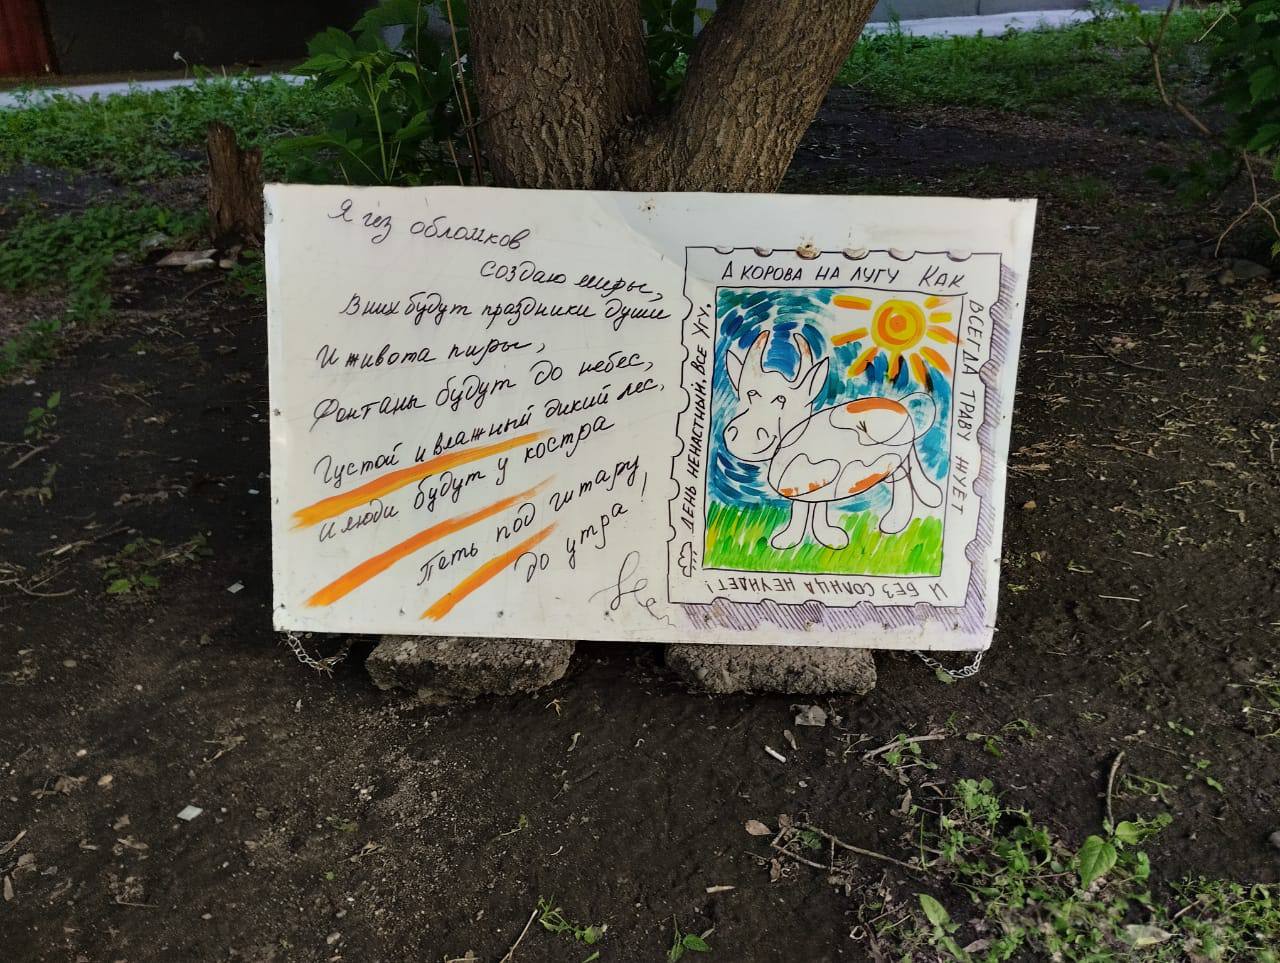 Я из обломков
создаю миры,
В них будут праздники души
И живота пиры,
Фонтаны будут до небес,
Густой и влажный дикий лес,
И люди будут у костра
Петь под гитару
до утра!
День ненастный. Все Угу.
А КОРОВА НА ЛУГУ КАК
ВСЕГДА ТРАВУ ЖУЁТ
И БЕЗ СОЛНЦА НЕ УНДЕТ!